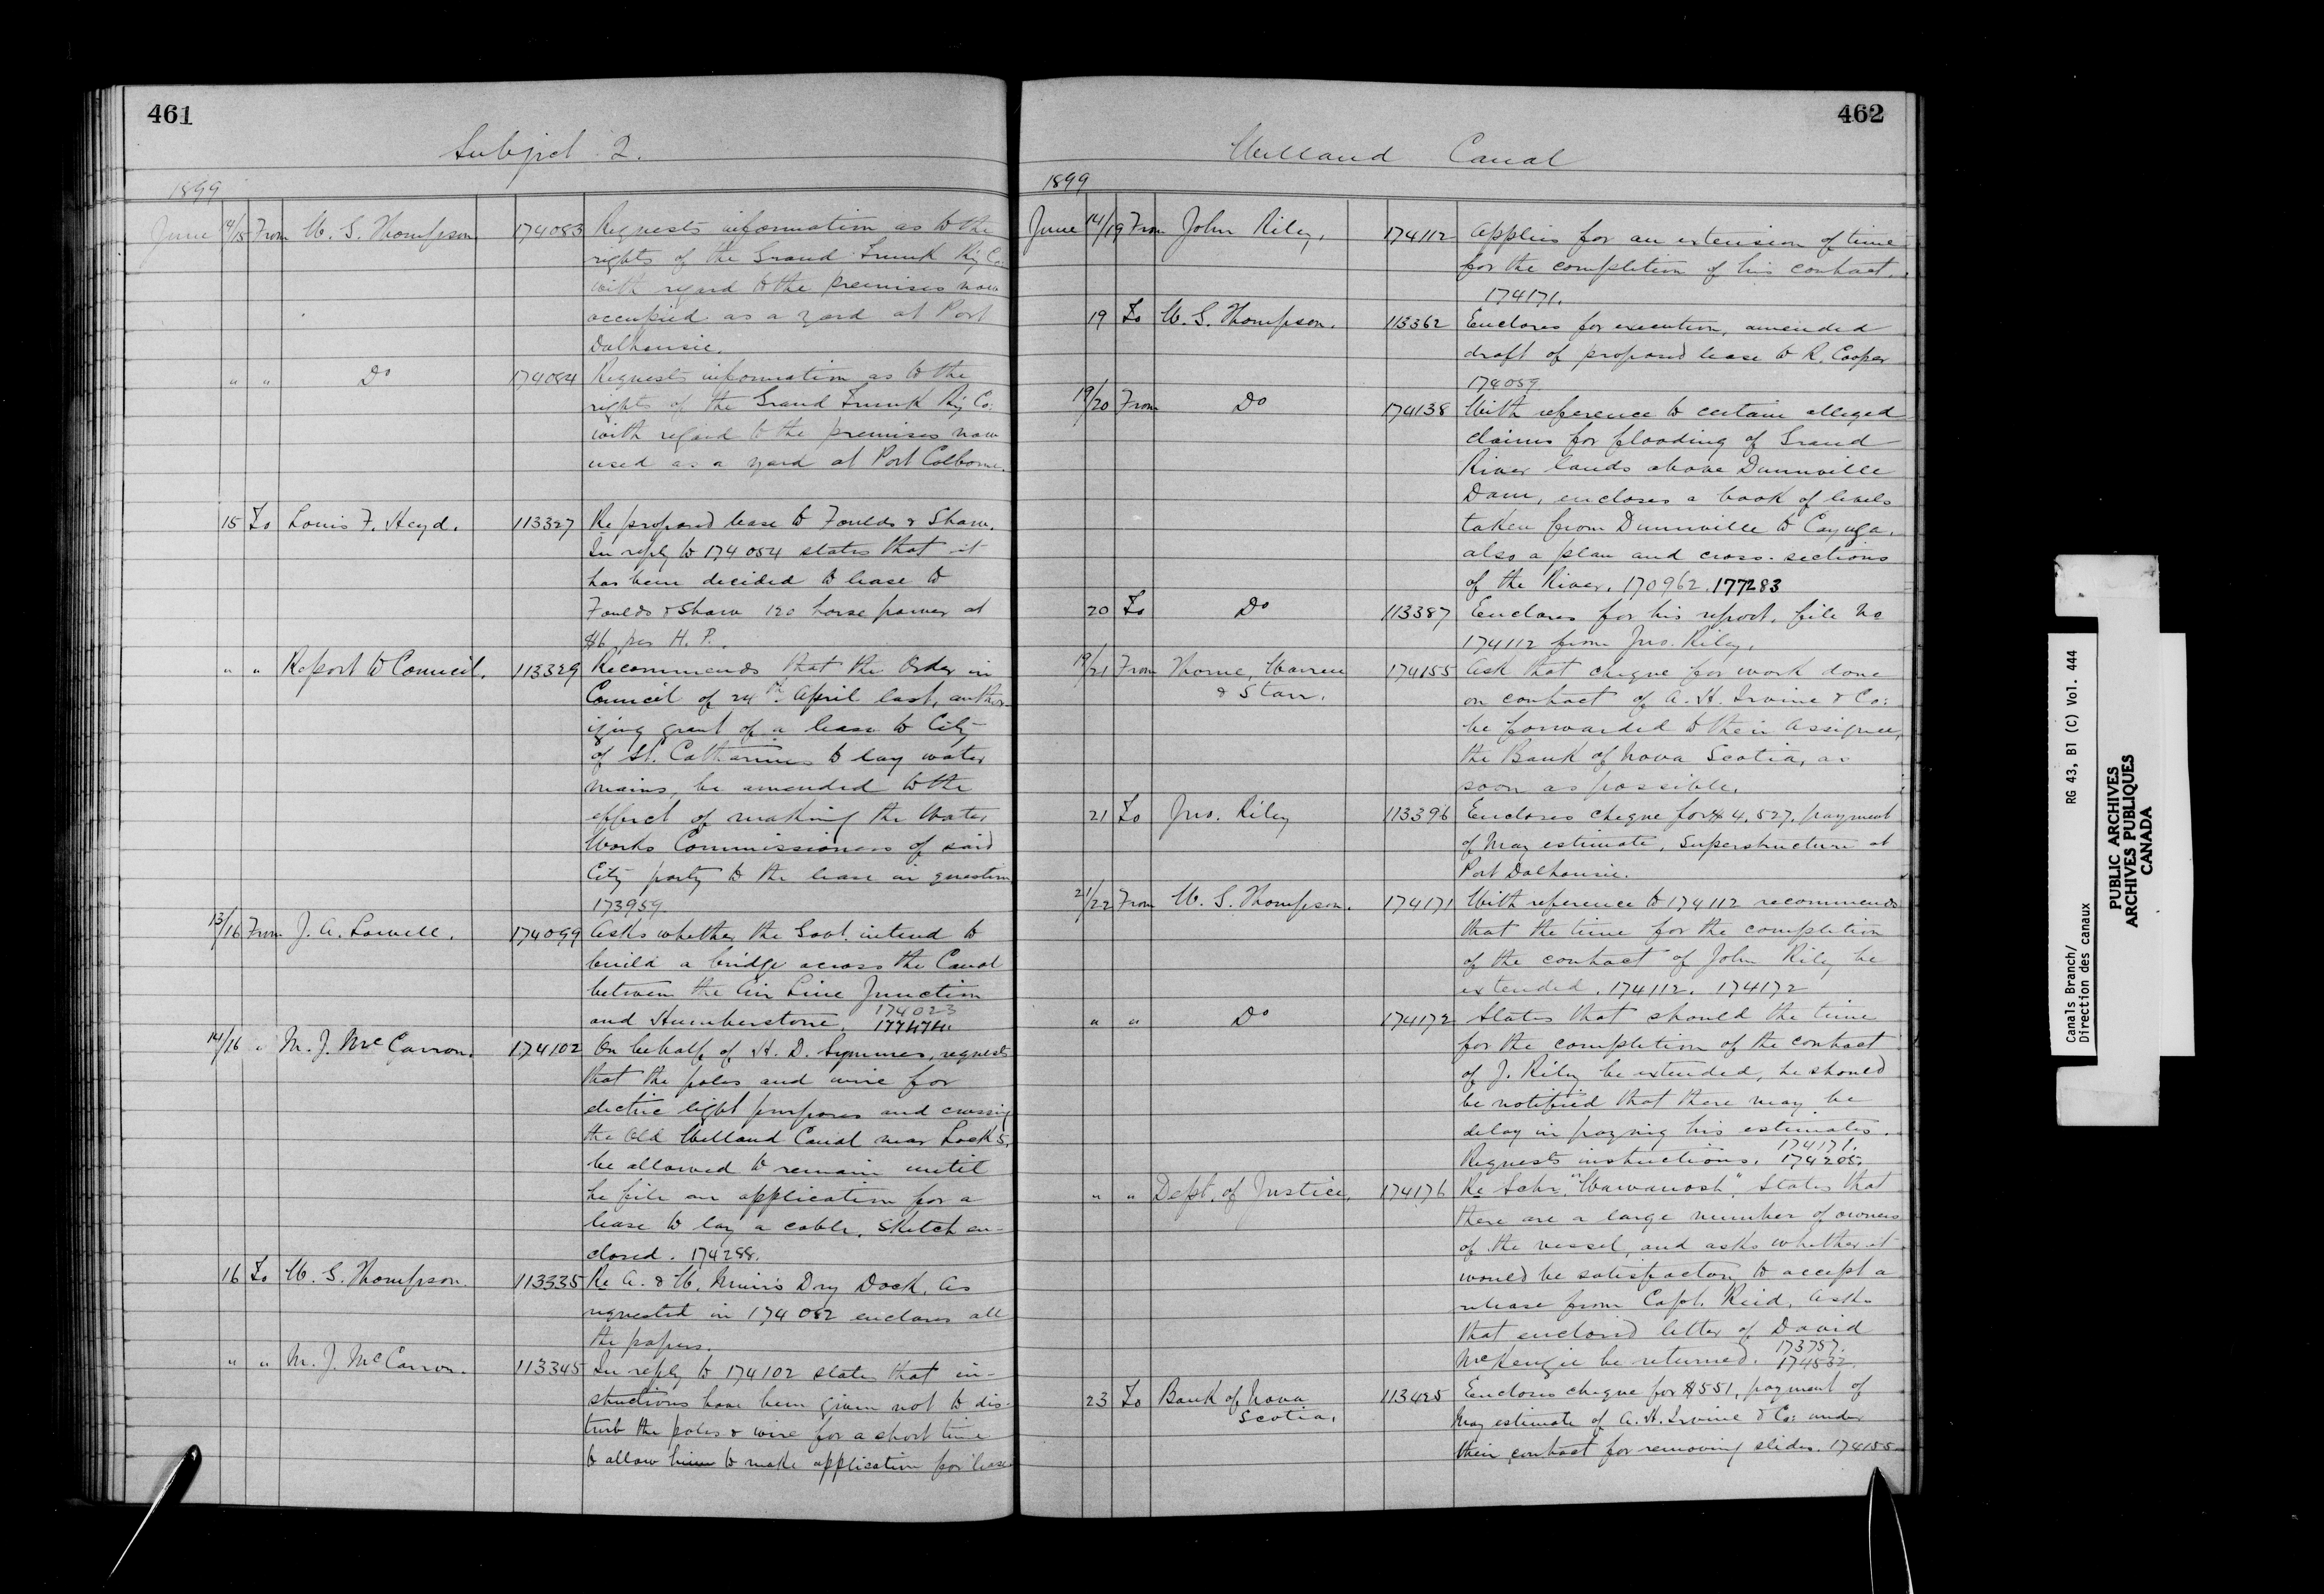 461
Subject 2.
1899
June 14/15 From W. G. Thompson 174083 Requests information as to the
rights of the Grand Trunk Ry Co.
with regard to the premises now
occupied as a yard at Port
Dalhousie.
" " Do 174084 Requests information as to the
rights of the Grand Trunk Ry Co:
with regard to the premises now
used as a yard at Port Colborne.
15 To Louis F. Heyd. 113327 Re proposed lease to Foulds & Shaw.
In reply to 174054 states that it
has been decided to lease to
Foulds & Shaw 120 horse power at
$6 per H. P.
" " Report to Council. 113329 Recommends that the Order in
Council of 24th April last, author-
izing grant of a lease to City
of St. Catharines to lay water
mains, be amended to the
effect of making the Water
Works Commissioners of said
City party to the lease in question
173959.
13/16 From J. A. Lowell. 174099 Asks whether the Govt. intend to
build a bridge across the Canal
between the Air Line Junction
174023
and Humberstone.
14/16 " M. J. McCarron. 174102 On behalf of H. D. Symmes, requests
that the poles and wire for
electric light purposes and crossing
the Old Welland Canal near Lock 5,
be allowed to remain until
he file an application for a
lease to lay a cable. Sketch en-
closed. 174288.
16 To W. G. Thompson. 113335 Re A. & W. Muir's Dry Dock. As
requested in 174082 encloses all
the papers.
" " M. J. McCarron. 113345 In reply to 174102 states that in-
structions have been given not to dis-
turb the poles & wire for a short time
to allow him to make application for lease.
462
Welland Canal
1899
June 14/19 From John Riley. 174112 Applies for an extension of time
for the completion of his contract.
174171.
19 To W. G. Thompson. 113362 Encloses for execution, amended
draft of proposed lease to R. Cooper
174059
19/20 From Do 174138 With reference to certain alleged
claims for flooding of Grand
River lands above Dunnville
Dam, encloses a book of levels
taken from Dunnville to Cayuga.
also a plan and cross-sections
of the River. 170962. 177283
20 To Do 113387 Encloses for his report, file No
174112 from Jno. Riley.
19/21 From Thorne, Warren 174155 Ask that cheque for work done
& Starr. on contract of A. H. Irvine & Co:
be forwarded to their assignee,
the Bank of Nova Scotia, as
soon as possible.
21 To Jno. Riley 113396 Encloses cheque for $4,527, payment
of May estimate, Superstructure at
Port Dalhousie.
21/22 From W. G. Thompson. 174171 With reference to 174112 recommends
that the time for the completion
of the contract of John Riley be
extended. 174112. 174172
" " Do 174172 States that should the time
for the completion of the contract
of J. Riley be extended, he should
be notified that there may be
delay in paying his estimates.
174171.
Requests instructions. 174205.
" " Dept. of Justice. 174176 Re Schr. "Wawanosh". States that
there are a large number of owners
of the vessel, and asks whether it
would be satisfactory to accept a
release from Capt. Reid. Asks
that enclosed letter of David
173757.
McKenzie be returned. 174532.
23 To Bank of Nova 113425 Encloses cheque for $551, payment of
Scotia. May estimate of A. H. Irvine & Co: under
their contract for removing slides. 174155
Canals Branch/
Direction des canaux
RG 43, B1 (C) Vol. 444
PUBLIC ARCHIVES
ARCHIVES PUBLIQUES
CANADA